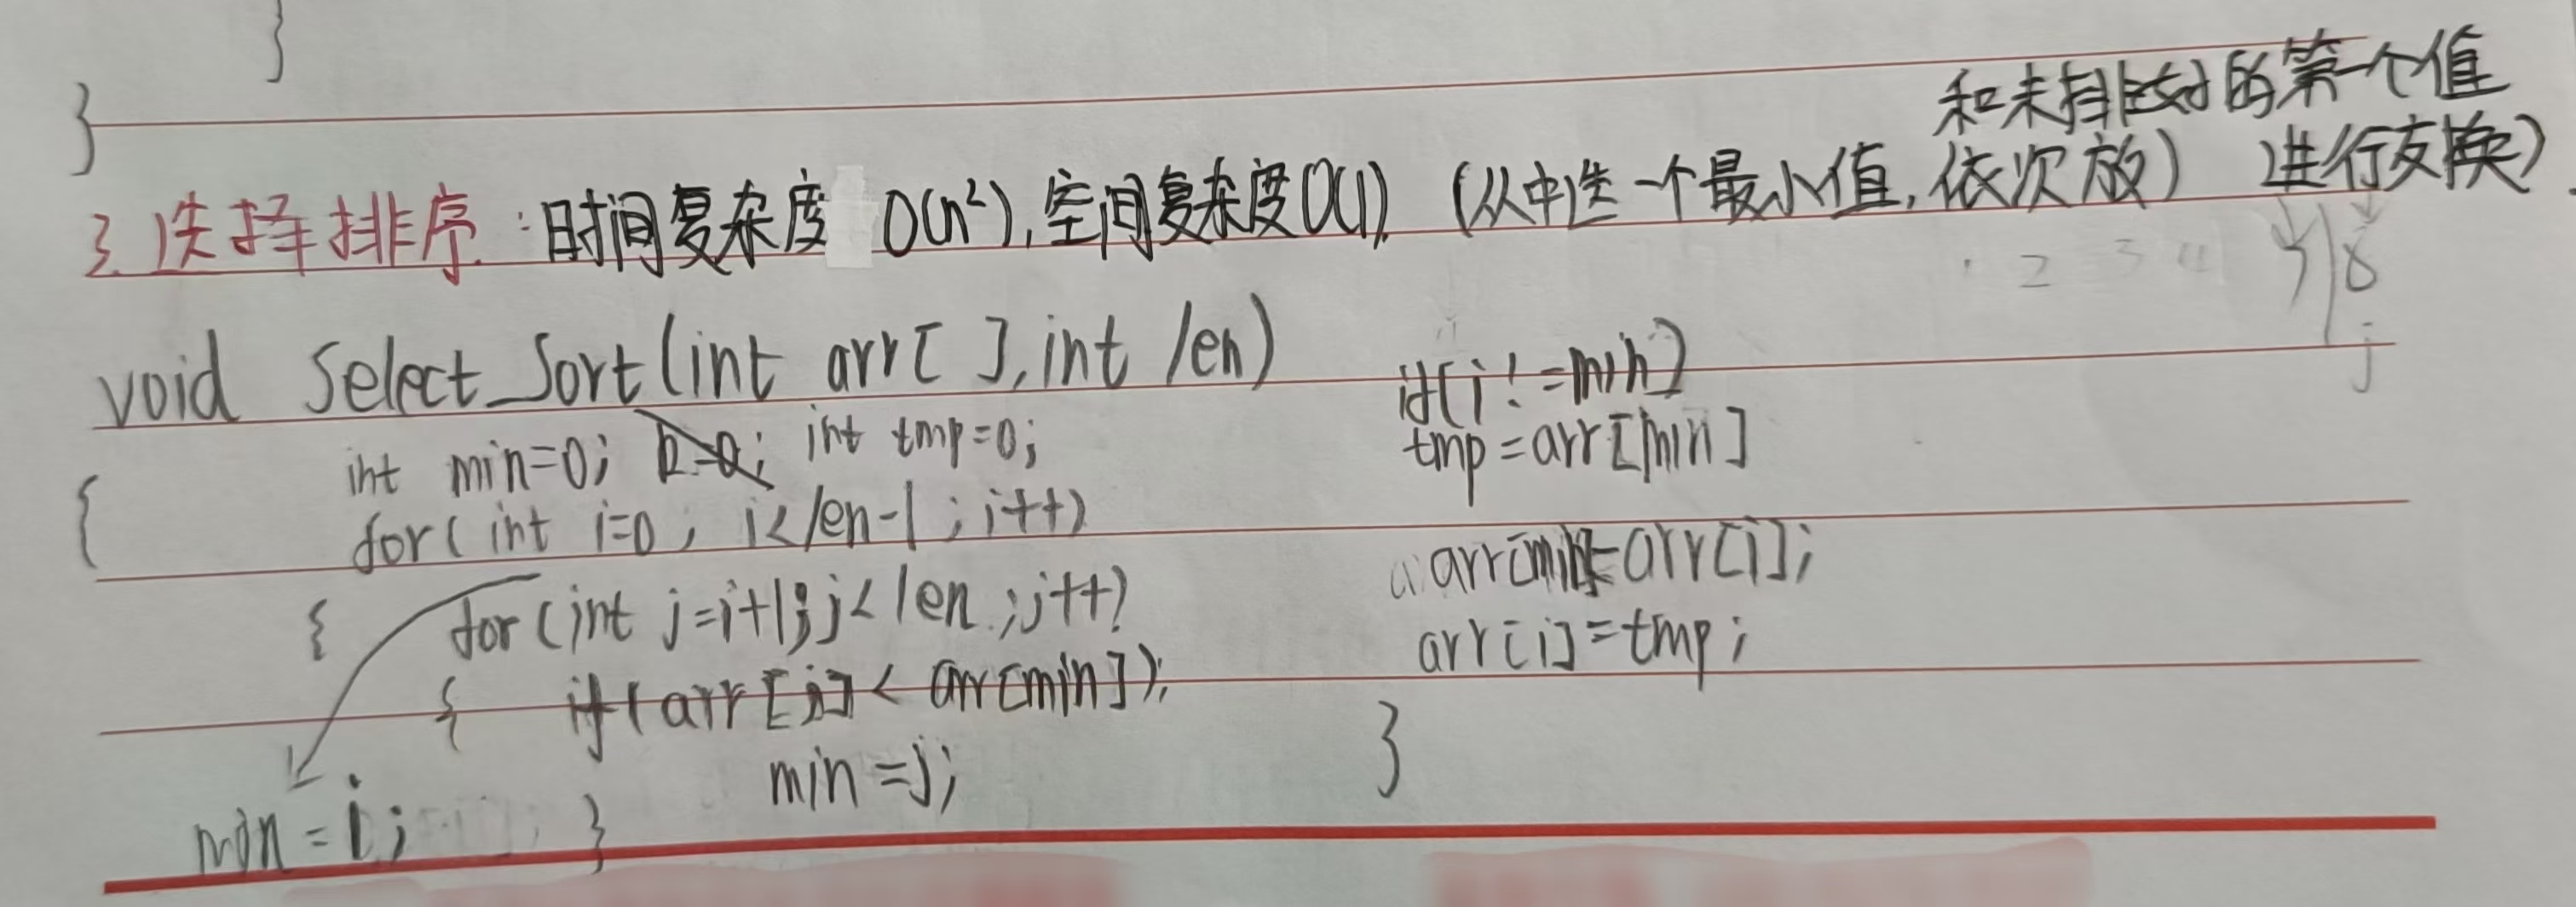 }
}
和未排好的第一个值
3.选择排序:时间复杂度 O(n²),空间复杂度O(1).(从中选一个最小值,依次放) 进行交换)
2 3 4
8
j
void Select_Sort(int arr[ ],int len)
int min=0; int tmp=0;
{
for(int i=0; i<len-1;i++)
{ for(int j=i+1;j<len;j++)
{ if(arr[j]<arr[min]);
min=j;
min=i; }
if(i!=min)
tmp=arr[min]
arr[min]=arr[i];
arr[i]=tmp;
}